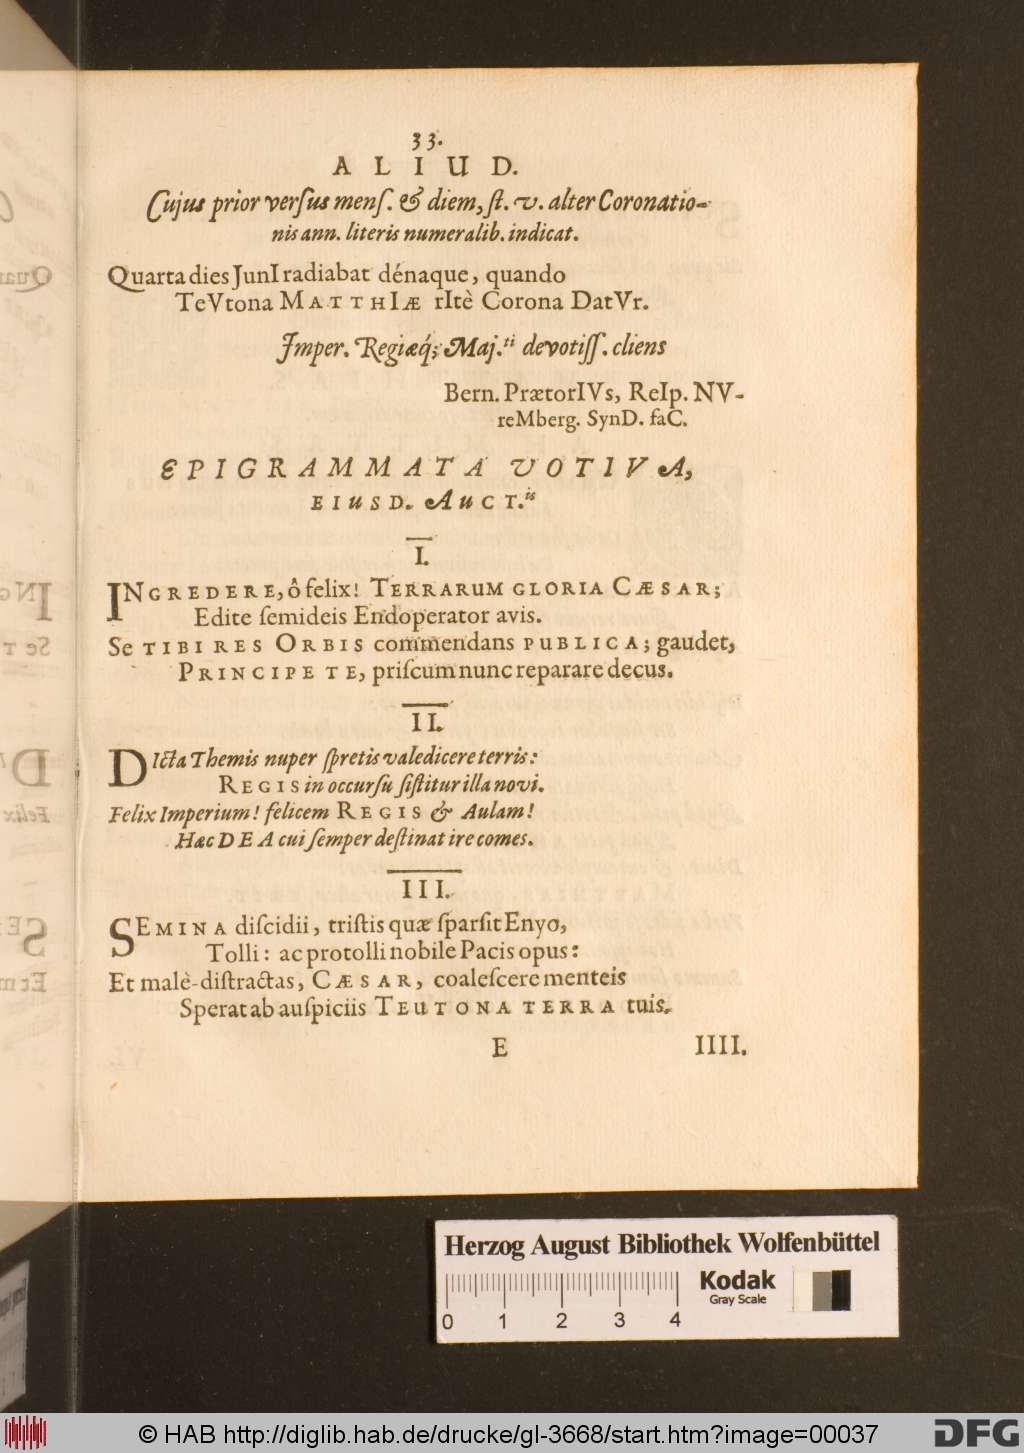 33.
ALIUD.
Cujus prior versus mens. & diem, st. v. alter Coronatio-
nis ann. literis numeralib. indicat.
Quarta dies JunI radiabat dénaque, quando
TeVtona MATTHIÆ rItè Corona DatVr.
Imper. Regiæq́; Maj.ti devotiss. cliens
Bern. PrætorIVs, ReIp. NV-
reMberg. SynD. faC.
EPIGRAMMATA VOTIVA,
EIUSD. AUCT.is
I.
INGREDERE, ô felix! TERRARUM GLORIA CÆSAR;
Edite semideis Endoperator avis.
Se TIBI RES ORBIS commendans PUBLICA; gaudet,
PRINCIPE TE, priscum nunc reparare decus.
II.
DIcta Themis nuper spretis valedicere terris:
REGIS in occursu sistitur illa novi.
Felix Imperium! felicem REGIS & Aulam!
Hæc DEA cui semper destinat ire comes.
III.
SEMINA discidii, tristis quæ sparsit Enyo,
Tolli: ac protolli nobile Pacis opus:
Et malè-distractas, CÆSAR, coalescere menteis
Sperat ab auspiciis TEUTONA TERRA tuis.
E IIII.
Herzog August Bibliothek Wolfenbüttel
Kodak
Gray Scale
0 1 2 3 4
© HAB http://diglib.hab.de/drucke/gl-3668/start.htm?image=00037
DFG